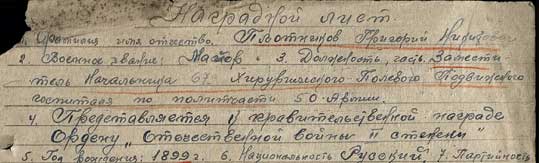 Наградной лист
1. Фамилия имя отчество. Плотников Григорий
2. Военное звание: Майор. 3. Должность, часть. Замести-
тель Начальника 67 Хирургического Полевого Подвижного
госпиталя по политчасти 50 Армии.
4 Представляется к правительственной награде
Ордену „Отечественной войны II степени"
5. Год рождения: 1899 г. 6. Национальность Русский 7. Партийность